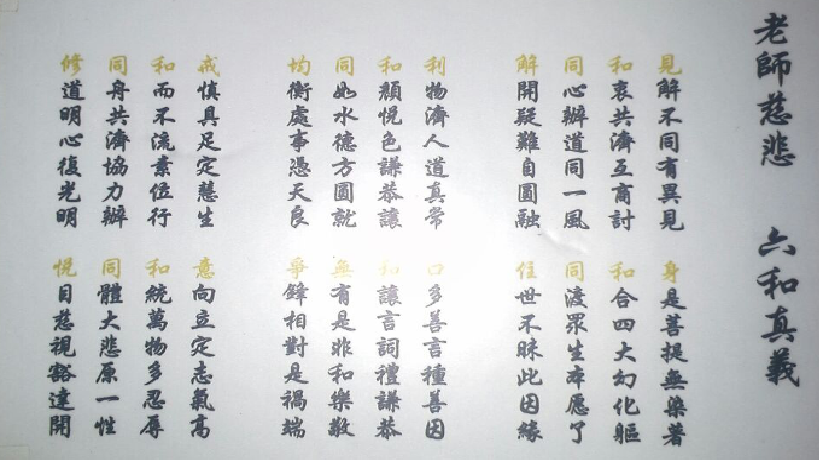 老師慈悲 六和真義
見解不同有異見
和衷共濟互商討
同心辦道同一風
解開疑難自圓融
利物濟人道真常
和顏悅色謙恭讓
同如水德方圓就
均衡處事憑天良
戒慎具足定慧生
和而不流素位行
同舟共濟協力辦
修道明心復光明
身是菩提無染著
和合四大幻化軀
同渡眾生本愿了
住世不昧此因緣
口多善言種善因
和讓言詞禮謙恭
無有是非和樂敬
爭鋒相對是禍端
意向立定志氣高
和統萬物多忍辱
同體大悲原一性
悅目慈視豁達開